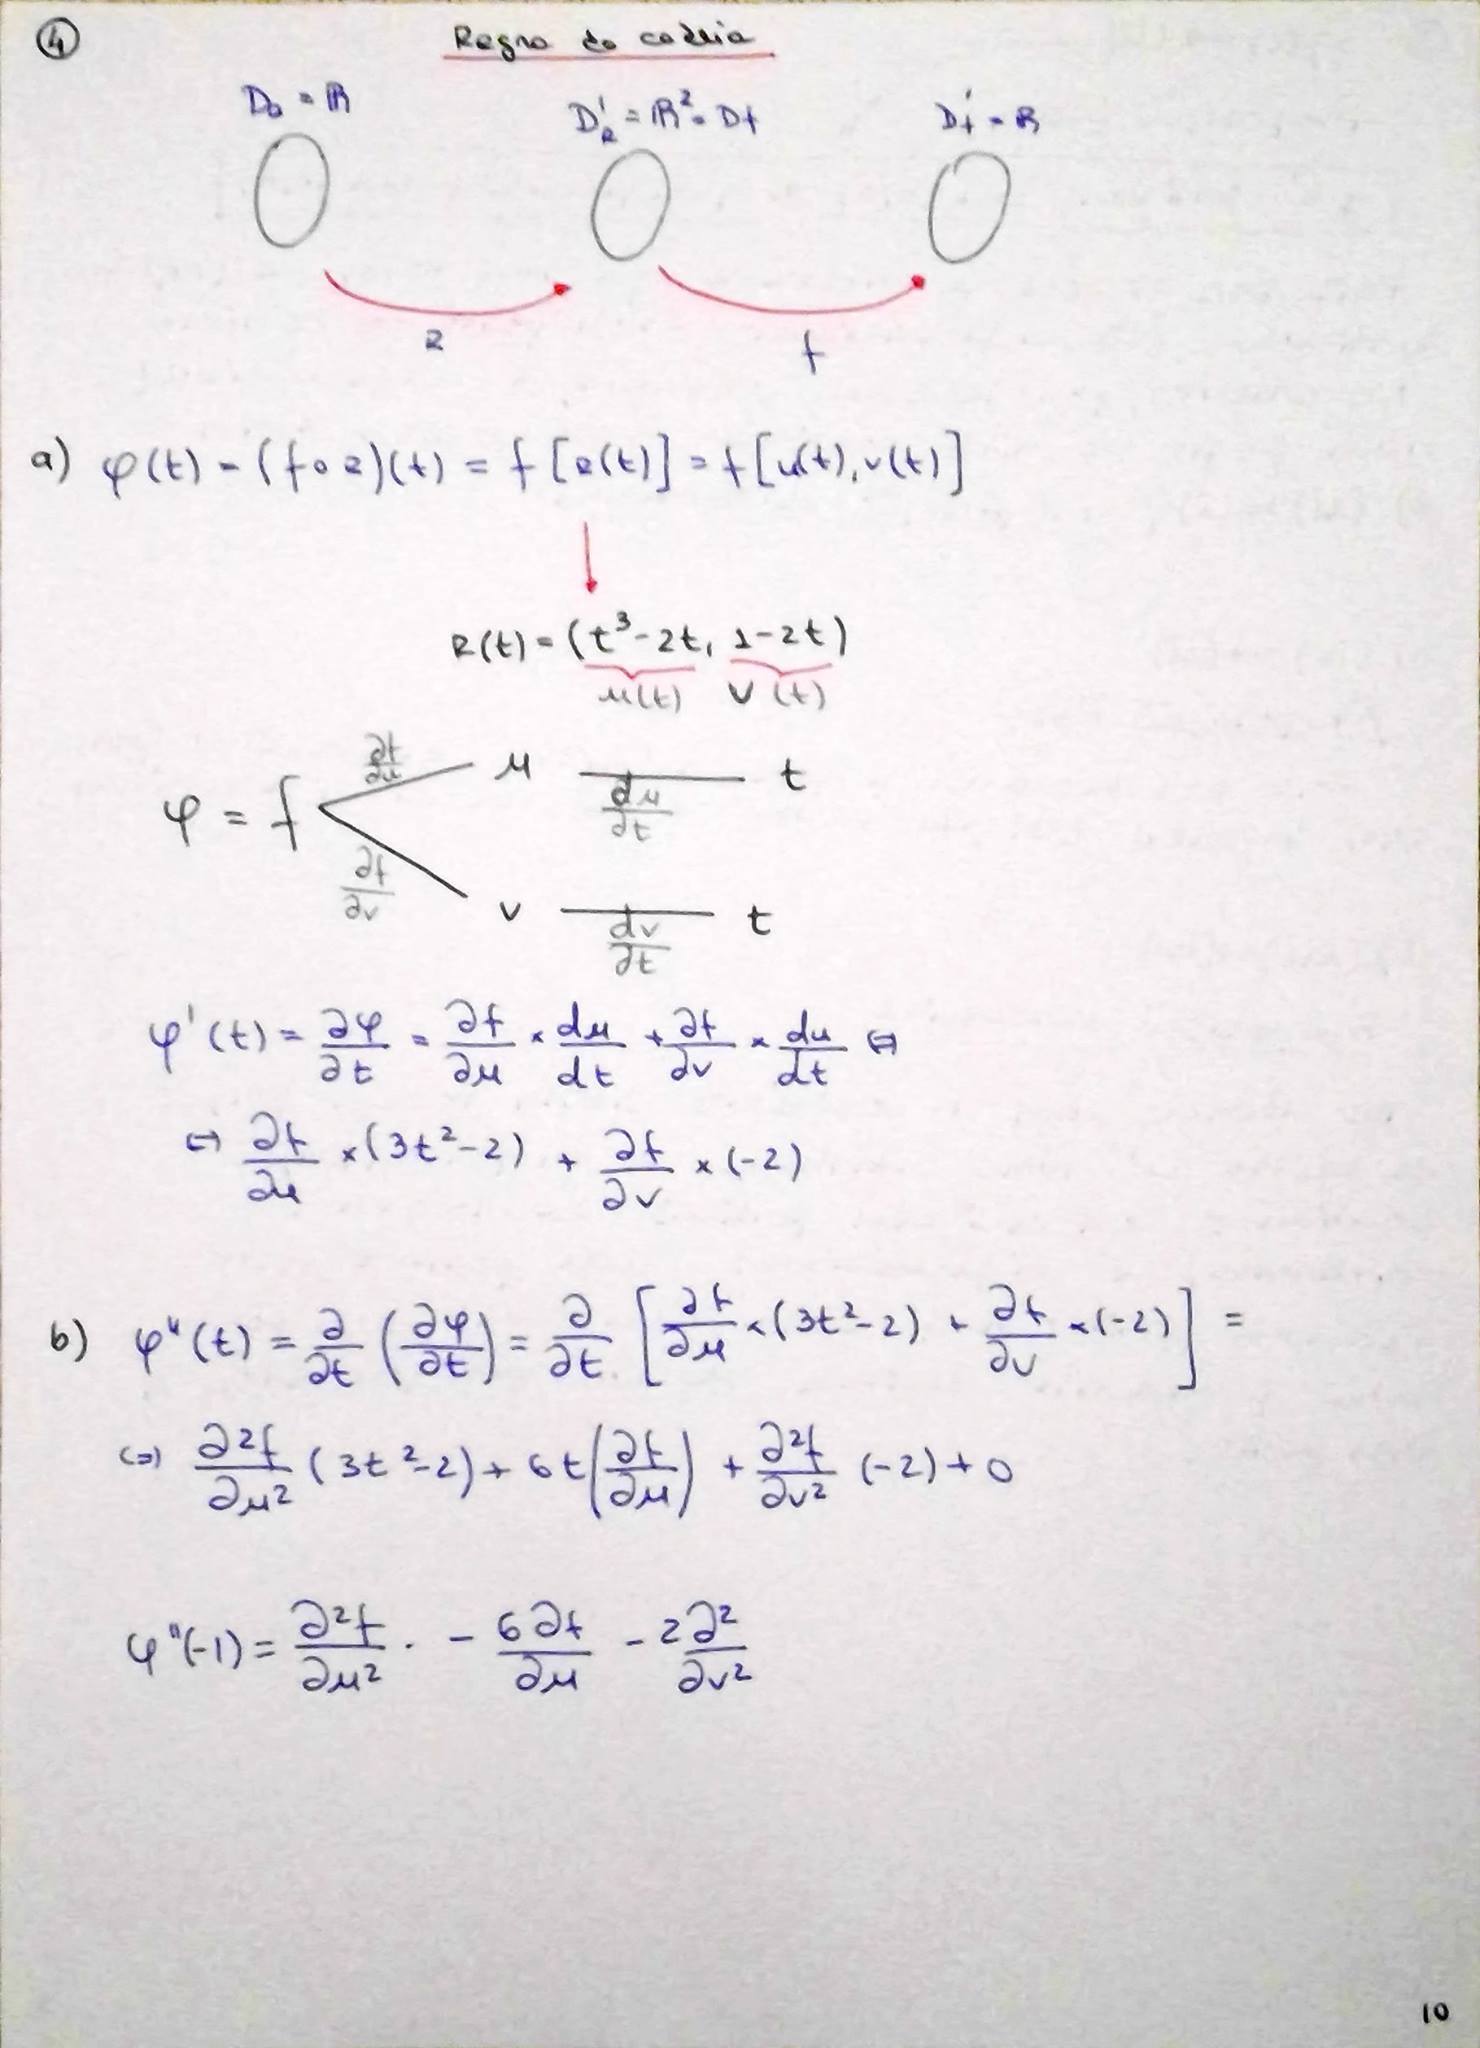 ④ Regra da cadeia
Da = ℝ   D'r = ℝ² = Df   D'f = ℝ
r   f
a) φ(t) = (f∘r)(t) = f[r(t)] = f[u(t), v(t)]
r(t) = (t³-2t, 1-2t)
u(t) v(t)
φ = f   ∂f/∂u   u   du/dt   t
∂f/∂v   v   dv/dt   t
φ'(t) = ∂φ/∂t = ∂f/∂u × du/dt + ∂f/∂v × du/dt ⇔
⇔ ∂f/∂u × (3t²-2) + ∂f/∂v × (-2)
b) φ''(t) = ∂/∂t (∂φ/∂t) = ∂/∂t [∂f/∂u × (3t²-2) + ∂f/∂v × (-2)] =
⇔ ∂²f/∂u² (3t²-2) + 6t(∂f/∂u) + ∂²f/∂v² (-2) + 0
φ''(-1) = ∂²f/∂u² · - 6∂f/∂u - 2∂²/∂v²
10